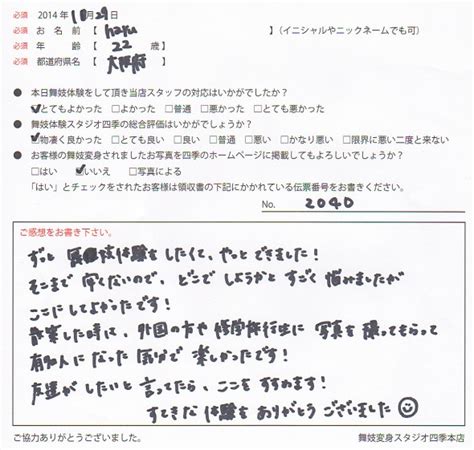 必須 2014年 10月29日
必須 お名前【 haru 】(イニシャルやニックネームでも可)
必須 年齢【 22 歳】
必須 都道府県名【 大阪府 】
● 本日舞妓体験をして頂き当店スタッフの対応はいかがでしたか?
☑とてもよかった □よかった □普通 □悪かった □とても悪かった
● 舞妓体験スタジオ四季の総合評価はいかがでしょうか?
☑物凄く良かった □とても良い □良い □普通 □悪い □かなり悪い □限界に悪い二度と来ない
● お客様の舞妓変身されましたお写真を四季のホームページに掲載してもよろしいでしょうか?
□はい ☑いいえ □写真による
「はい」とチェックをされたお客様は領収書の下記にかかれている伝票番号をお書きください。
No. 2040
ご感想をお書き下さい。
ずっと 体験をしたくて、やっとできました!
そこまで安くないので、どこでしようかとすごく悩みましたが
ここにしてよかったです!
散策した時は、外国の方や修学旅行生に写真を撮ってもらって
有名人になった気分で楽しかったです!
友達がしたいと言ってたら、ここをすすめます!
すてきな体験をありがとうございました☺
ご協力ありがとうございました。
舞妓変身スタジオ四季本店